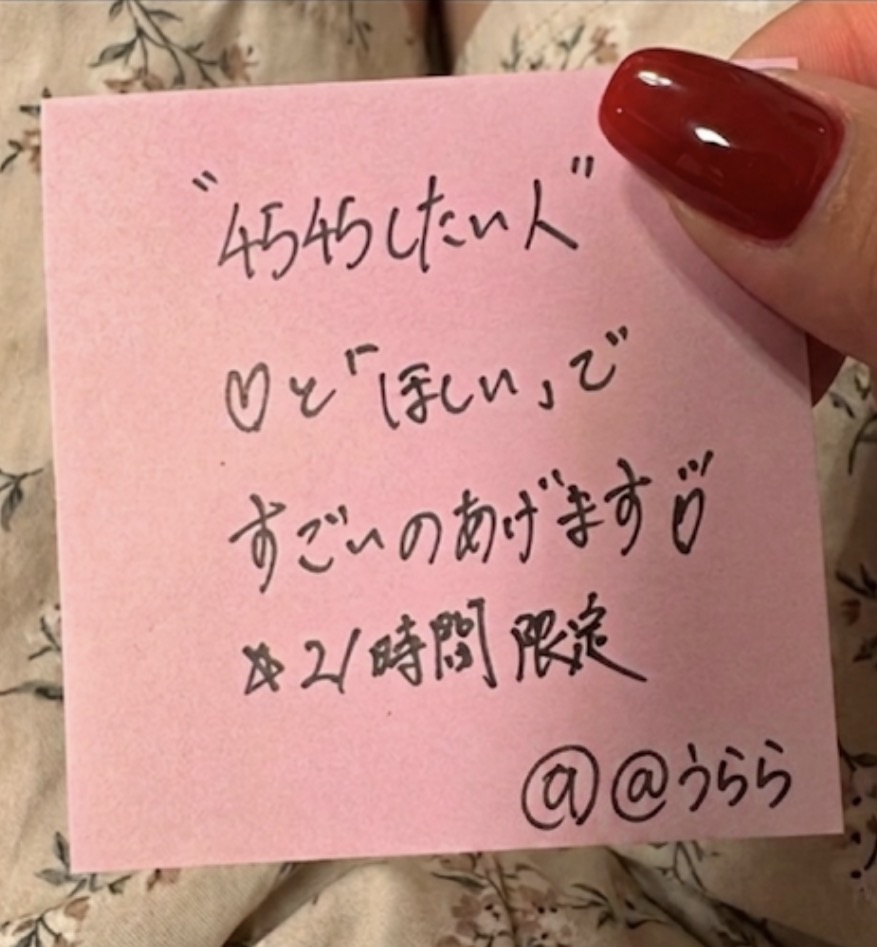 "4545したい人"
♡と「ほしい」で
すごいのあげます♡
※21時間限定
@@うらら